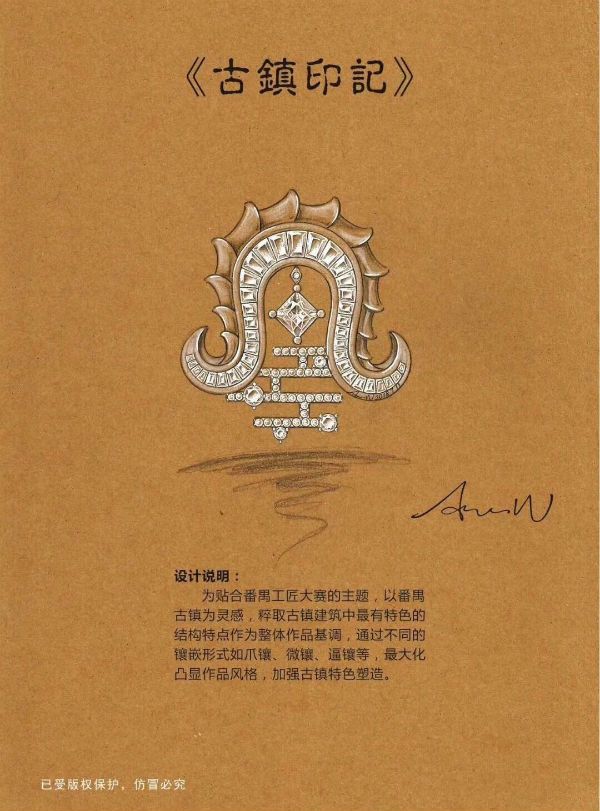 《古鎮印記》
设计说明：
为贴合番禺工匠大赛的主题，以番禺
古镇为灵感，粹取古镇建筑中最有特色的
结构特点作为整体作品基调，通过不同的
镶嵌形式如爪镶、微镶、逼镶等，最大化
凸显作品风格，加强古镇特色塑造。
已受版权保护，仿冒必究